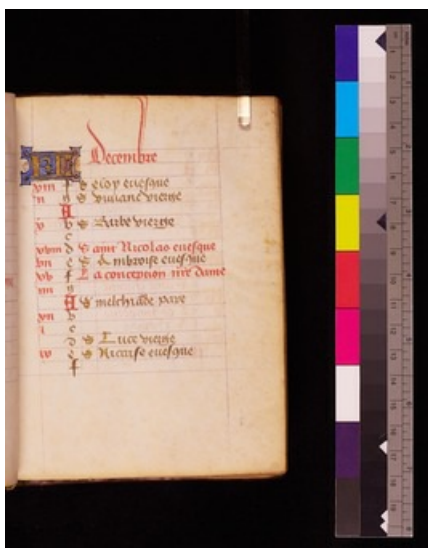 KL Decembre
xviii f S eloy euesque
vii g S viuiane vierge
A
v b S Barbe vierge
c
xviii d Saint Nicolas euesque
vii e S Ambroise euesque
xv f La conception nre dame
iiii g
A S melchiade pape
xii b
i c
d S Luce vierge
ix e S Nicaise euesque
f